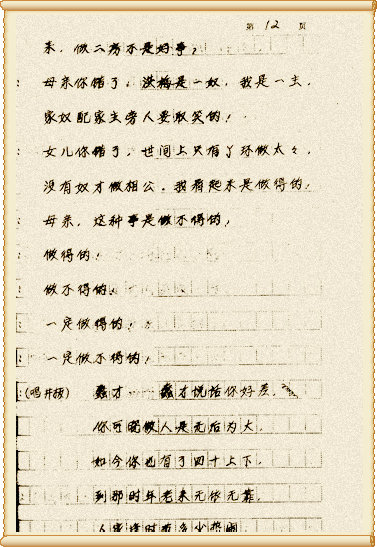 第 12 页
来，做二房不是好事，
母亲你错了，洪梅是一奴，我是一主，
家奴配家主旁人要取笑的！
女儿你错了，世间上只有丫环做太々，
没有奴才做相公，我看起来是做得的，
母亲，这种事是做不得的，
做得的！
做不得的，
一定做得的！
一定做不得的！
(唱 板) 蠢才 蠢才说话你好差，
你可晓做人是无后为大，
如今你也有了四十上下，
到那时年老来无依无靠，